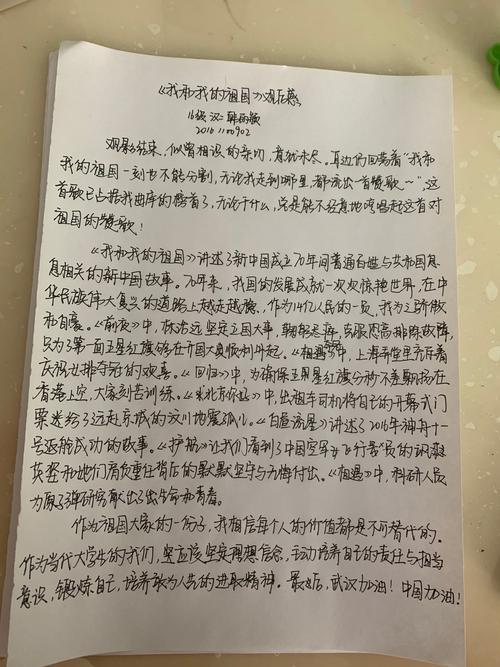 《我和我的祖国》观后感
16级 汉二 韩雨馨
2016110902
观影结束，似曾相识的亲切，意犹未尽。耳边仍回荡着“我和
我的祖国一刻也不能分割，无论我走到哪里，都流出一首赞歌～”，这
首歌已占据我曲库的榜首了，无论干什么，总是能不经意地哼唱起这首对
祖国的赞歌！
《我和我的祖国》讲述了新中国成立70年间普通百姓与共和国息
息相关的新中国故事。70年来，我国的发展成就一次次惊艳世界，在中
华民族伟大复兴的道路上越走越稳，作为14亿人民的一员，我为之骄傲
和自豪。《前夜》中，林治远坚定立国大事，克服恐高排除故障，
只为了第一面五星红旗能够在开国大典顺利升起。《相遇》中，上海弄堂里充斥着
庆祝女排夺冠的欢喜。《回归》中，为确保五星红旗分秒不差飘扬在
香港上空，大家刻苦训练。《北京你好》中，出租车司机将自己的开幕式门
票送给了远赴京城的汶川地震孤儿。《白昼流星》讲述了2016年神舟十一
号返航成功的故事。《护航》让我们看到了中国空军女飞行员的飒爽
英姿和她们肩负重任背后的默默坚守与无悔付出。《相遇》中，科研人员
为原子弹研究献出了生命和青春。
作为祖国大家的一份子，我相信每个人的价值都是不可替代的。
作为当代大学生的我们，更应该坚定理想信念，主动培养自己的责任与担当
意识，锻炼自己，培养敢为人先的进取精神。最后，武汉加油！中国加油！